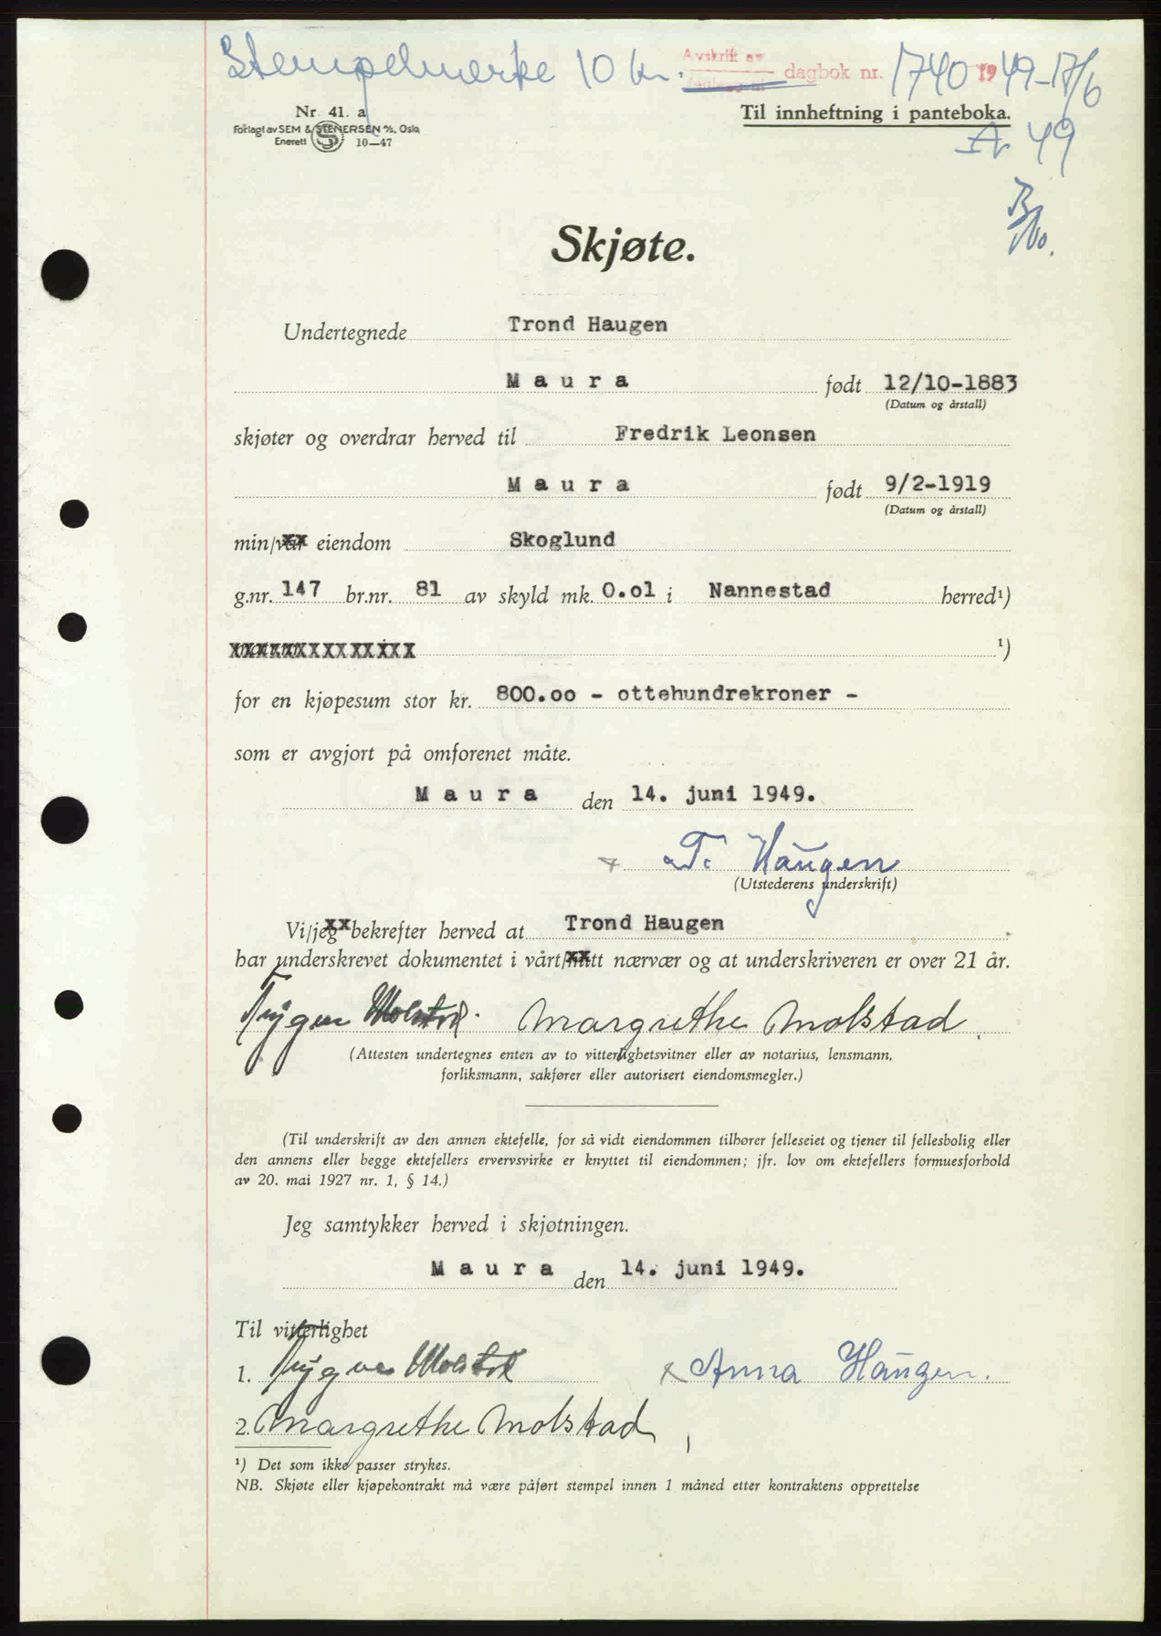 Stempelmerke 10 kr.
Avskrift av dagbok nr. 1740 1949-17/6
Nr 41. a
Til innheftning i panteboka.
Forlagt av SEM & STENERSEN A/S, Oslo
Enerett S 10—47
A 49
Skjøte.
Undertegnede Trond Haugen
Maura født 12/10-1883
(Datum og årstall)
skjøter og overdrar herved til Fredrik Leonsen
Maura født 9/2-1919
(Datum og årstall)
min/vår eiendom Skoglund
g.nr. 147 br.nr. 81 av skyld mk. 0.01 i Nannestad herred¹)
xxxxxxxxxxxxxxx ¹)
for en kjøpesum stor kr. 800.00 - ottehundrekroner -
som er avgjort på omforenet måte.
Maura den 14. juni 1949.
T. Haugen
(Utstederens underskrift)
Vi/jeg bekrefter herved at Trond Haugen
har underskrevet dokumentet i vårt/mitt nærvær og at underskriveren er over 21 år.
Trygve Molstad. Margrethe Molstad
(Attesten undertegnes enten av to vitterlighetsvitner eller av notarius, lensmann,
forliksmann, sakfører eller autorisert eiendomsmegler.)
(Til underskrift av den annen ektefelle, for så vidt eiendommen tilhører felleseiet og tjener til fellesbolig eller
den annens eller begge ektefellers ervervsvirke er knyttet til eiendommen; jfr. lov om ektefellers formuesforhold
av 20. mai 1927 nr. 1, § 14.)
Jeg samtykker herved i skjøtningen.
Maura den 14. juni 1949.
Til vitterlighet
1. Trygve Molstad x Anna Haugen.
2. Margrethe Molstad
¹) Det som ikke passer strykes.
NB. Skjøte eller kjøpekontrakt må være påført stempel innen 1 måned etter kontraktens opprettelse